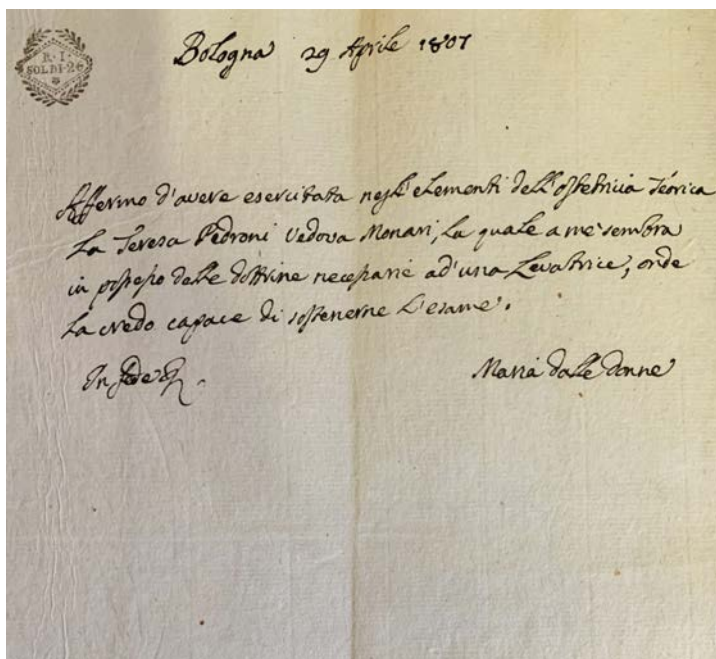 R. I.
SOLDI·26
Bologna 29 Aprile 1807
Affermo d'avere esercitata negl'elementi dell'ostetricia Teorica
la Teresa Pedroni Vedova Monari, la quale a me sembra
in possesso delle dottrine necessarie ad'una Levatrice, onde
la credo capace di sostenerne l'esame.
In fede
Maria dalle Donne